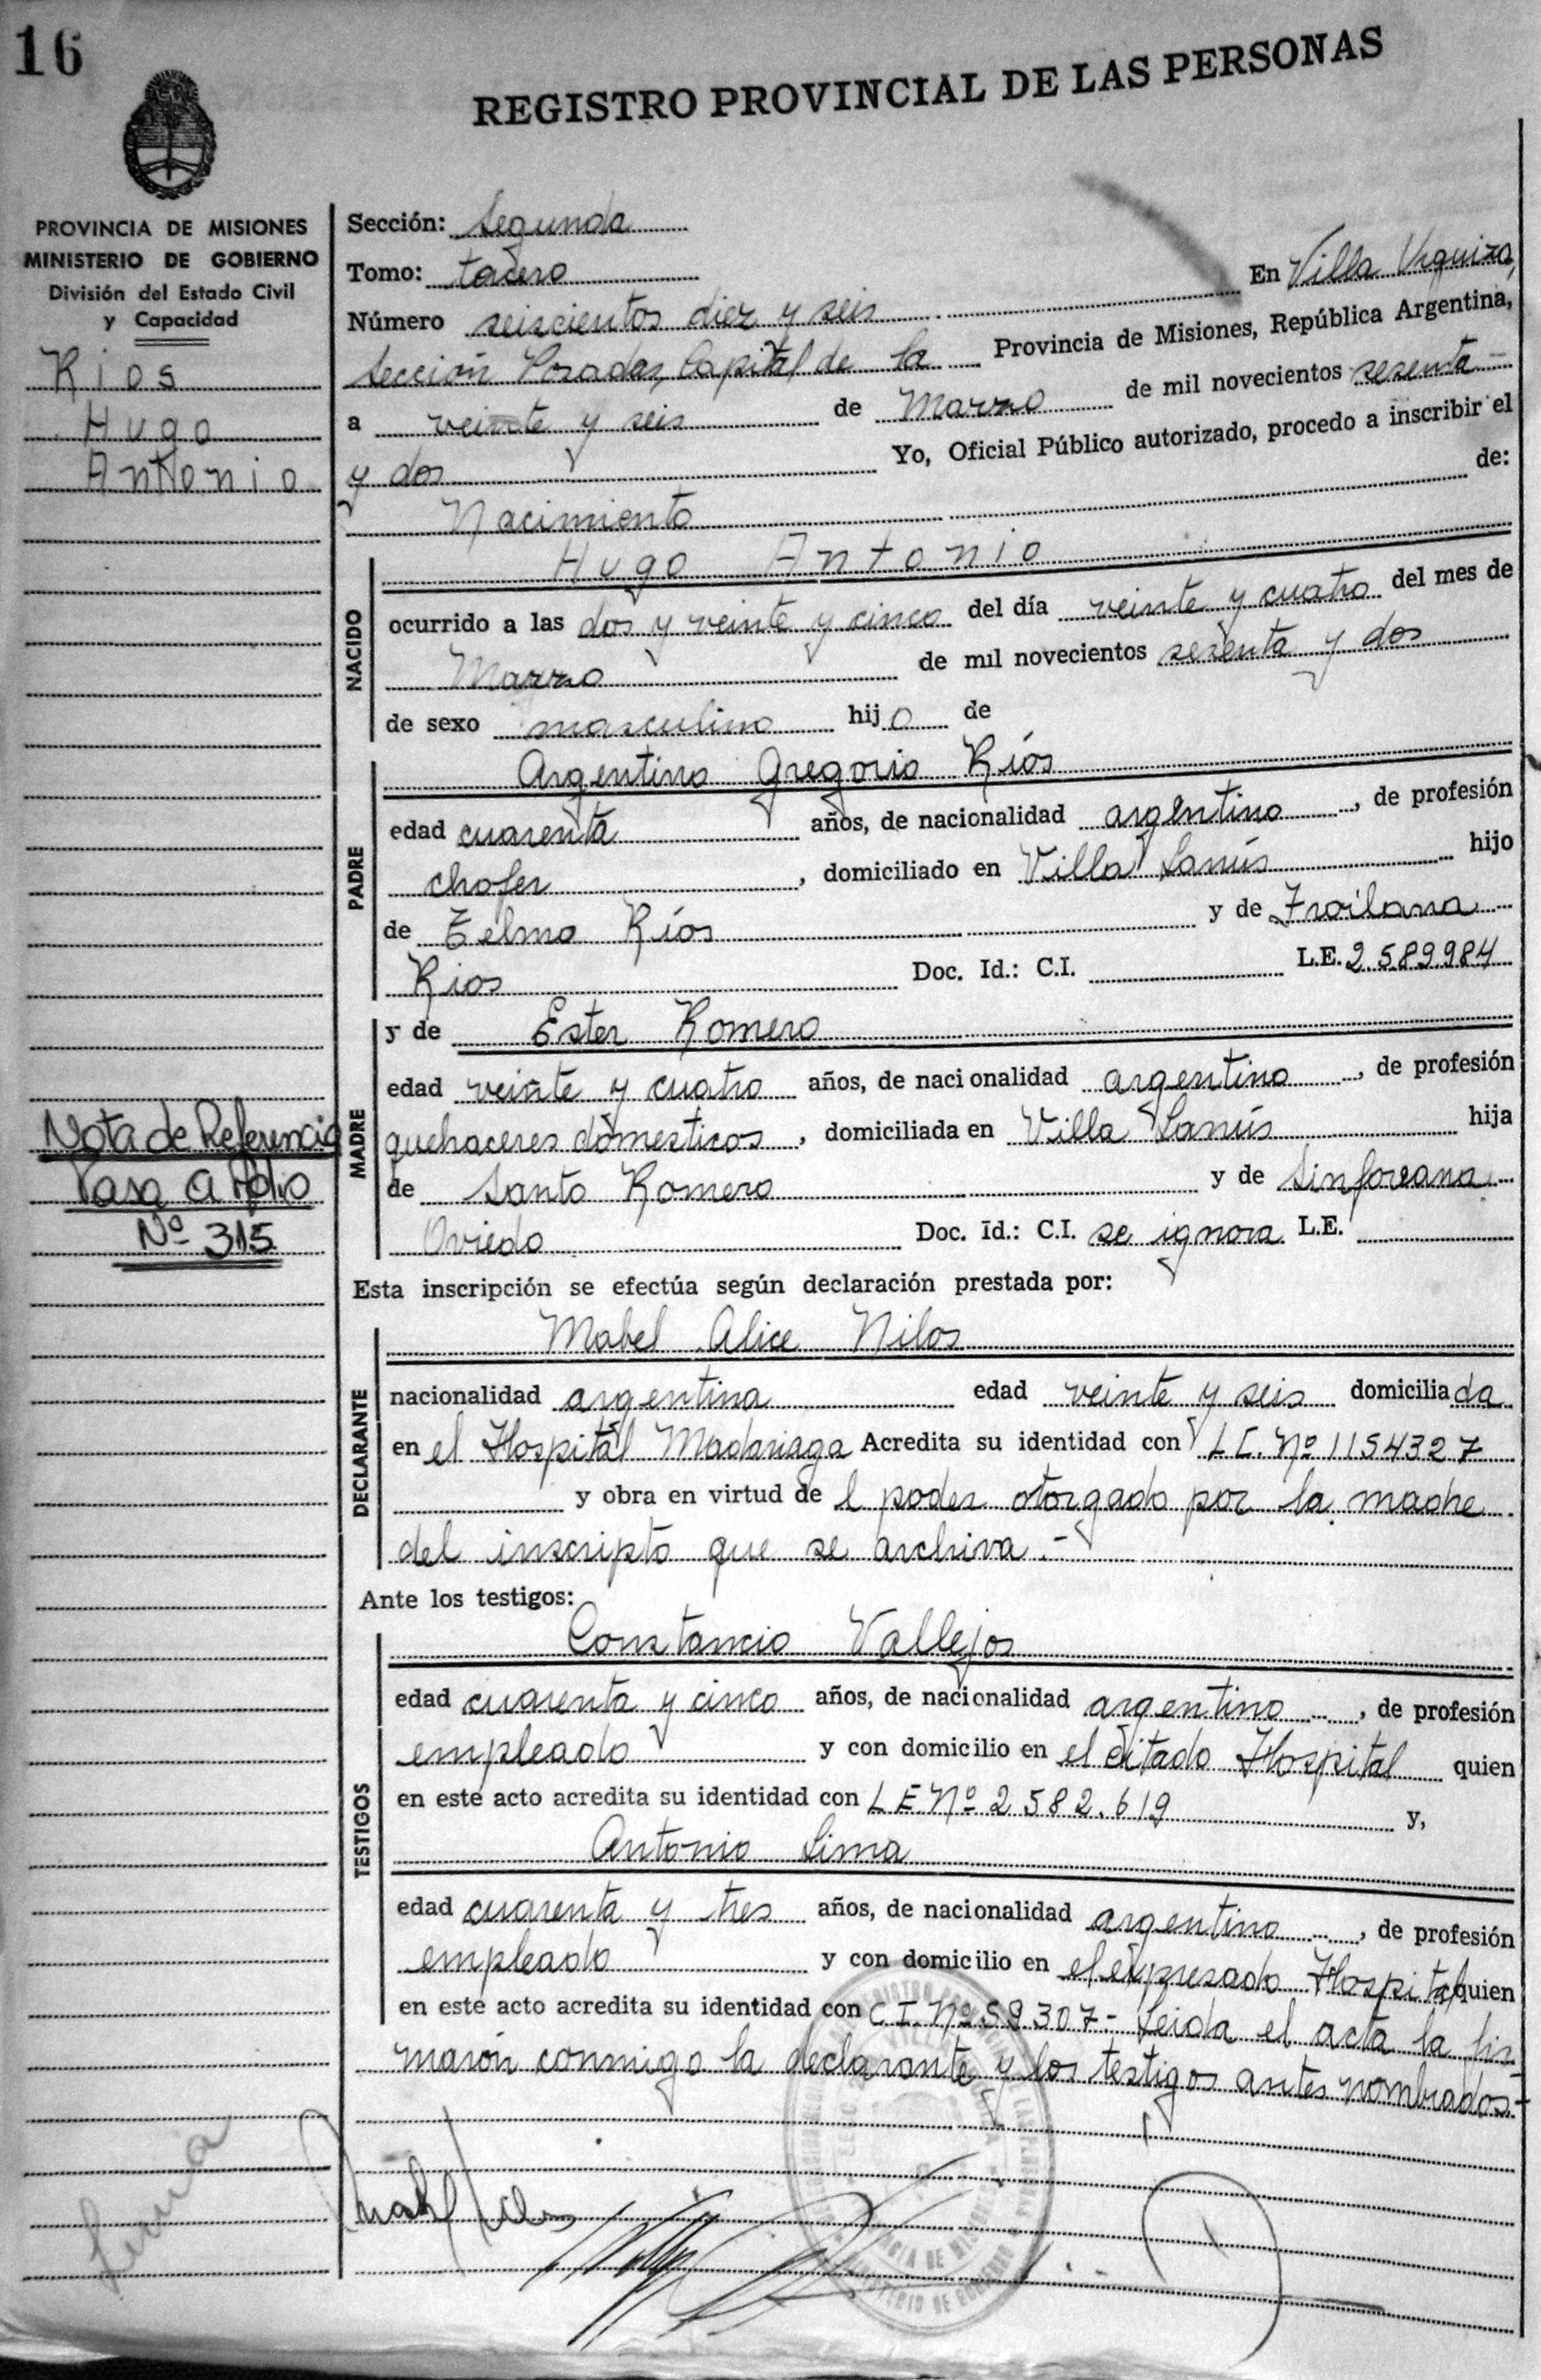 16
REGISTRO PROVINCIAL DE LAS PERSONAS
PROVINCIA DE MISIONES
MINISTERIO DE GOBIERNO
División del Estado Civil
y Capacidad
Rios
Hugo
Antonio
Nota de Referencia
Pasa a folio
Nº 315
Sección: Segunda
Tomo: tercero
Número seiscientos diez y seis En Villa Urquiza,
Sección Posadas, Capital de la Provincia de Misiones, República Argentina,
a veinte y seis de Marzo de mil novecientos sesenta
y dos Yo, Oficial Público autorizado, procedo a inscribir el
Nacimiento de:
Hugo Antonio
NACIDO
ocurrido a las dos y veinte y cinco del día veinte y cuatro del mes de
Marzo de mil novecientos sesenta y dos
de sexo masculino hijo de
Argentino Gregorio Ríos
PADRE
edad cuarenta años, de nacionalidad argentino, de profesión
chofer, domiciliado en Villa Lanús hijo
de Telmo Ríos y de Froilana
Rios Doc. Id.: C.I. L.E. 2.589.984
MADRE
y de Ester Romero
edad veinte y cuatro años, de nacionalidad argentina, de profesión
quehaceres domesticos, domiciliada en Villa Lanús hija
de Santo Romero y de Sinforeana
Oviedo Doc. Id.: C.I. se ignora L.E.
Esta inscripción se efectúa según declaración prestada por:
Mabel Alice Nilos
DECLARANTE
nacionalidad argentina edad veinte y seis domiciliada
en el Hospital Madariaga Acredita su identidad con L.C. Nº 1154327
y obra en virtud de l poder otorgado por la madre
del inscripto que se archiva.-
Ante los testigos:
Constancio Vallejos
TESTIGOS
edad cuarenta y cinco años, de nacionalidad argentino, de profesión
empleado y con domicilio en el citado Hospital quien
en este acto acredita su identidad con L E Nº 2.582.619 y,
Antonio Lima
edad cuarenta y tres años, de nacionalidad argentino, de profesión
empleado y con domicilio en el expresado Hospital quien
en este acto acredita su identidad con C.I. Nº 59307.- Leida el acta la fir
maron conmigo la declarante y los testigos antes nombrados.-
Lima